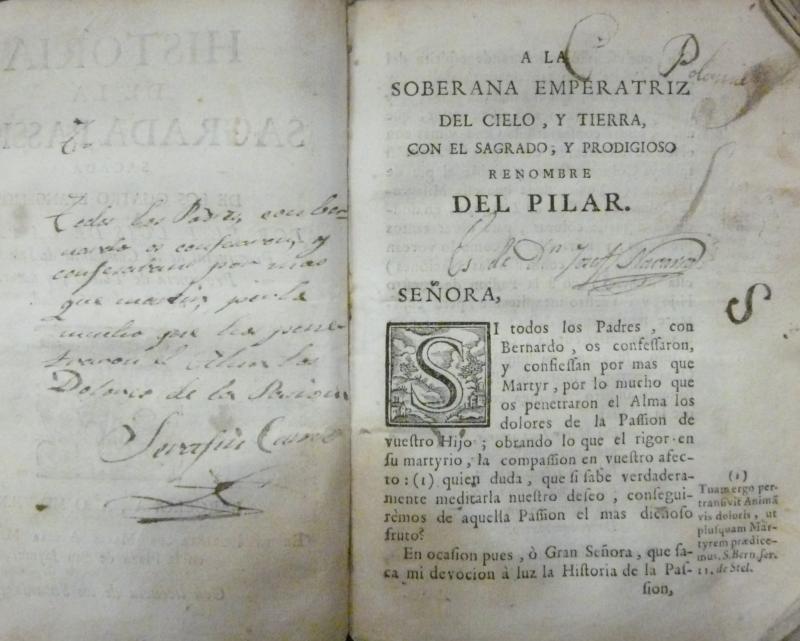 Todos los Padres, con Ber-
nardo os confesaron, y
confesaran por mas
que martir, por lo
mucho que los pene-
traron el Alma los
Dolores de la Pasion
A LA
SOBERANA EMPERATRIZ
DEL CIELO, Y TIERRA,
CON EL SAGRADO, Y PRODIGIOSO
RENOMBRE
DEL PILAR.
Es de Dn
SEÑORA,
SI todos los Padres, con
Bernardo, os confessaron,
y confiessan por mas que
Martyr, por lo mucho que
os penetraron el Alma los
dolores de la Passion de
vuestro Hijo; obrando lo que el rigor en
su martyrio, la compassion en vuestro afec-
to: (1) quien duda, que si sabe verdadera-
mente meditarla nuestro deseo, consegui-
rèmos de aquella Passion el mas dichoso
fruto?
En ocasion pues, ò Gran Señora, que sa-
ca mi devocion à luz la Historia de la Pas-
sion,
(1)
Tuam ergo per-
transivit Animã
vis doloris, ut
plusquam Mar-
tyrem prædice-
mus. S. Bern. ser.
11. de Stel.